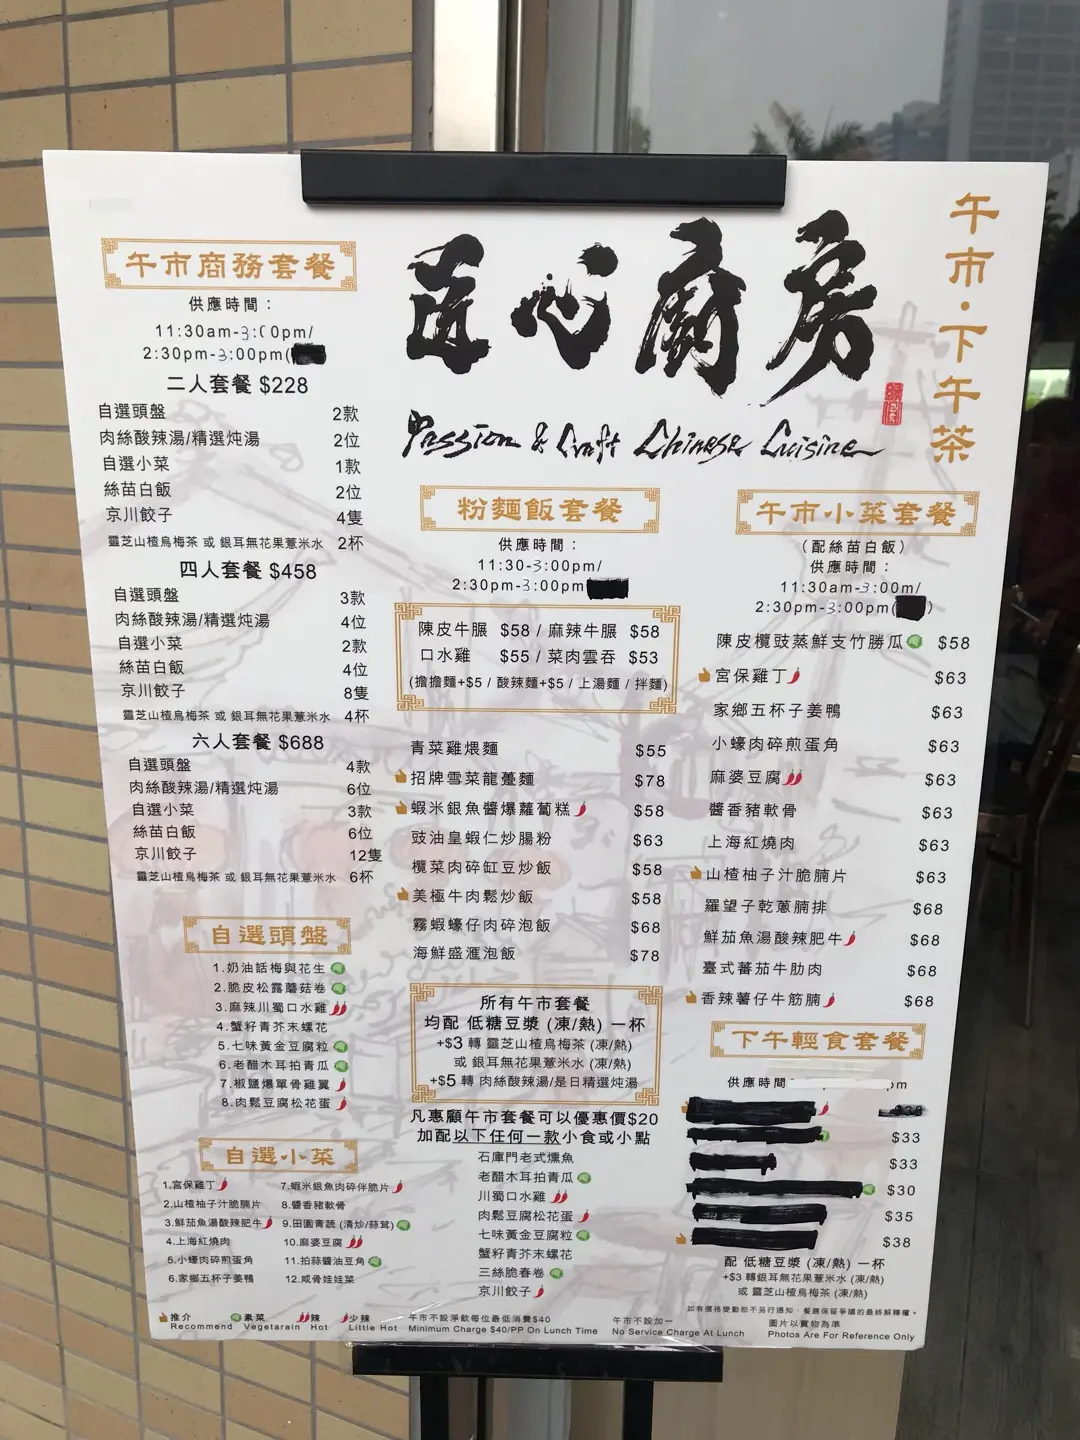 午市·下午茶
匠心廚房
Passion & Craft Chinese Cuisine
午市商務套餐
供應時間：
11:30am-3:00pm/
2:30pm-3:00pm(
二人套餐 $228
自選頭盤 2款
肉絲酸辣湯/精選炖湯 2位
自選小菜 1款
絲苗白飯 2位
京川餃子 4隻
靈芝山楂烏梅茶 或 銀耳無花果薏米水 2杯
四人套餐 $458
自選頭盤 3款
肉絲酸辣湯/精選炖湯 4位
自選小菜 2款
絲苗白飯 4位
京川餃子 8隻
靈芝山楂烏梅茶 或 銀耳無花果薏米水 4杯
六人套餐 $688
自選頭盤 4款
肉絲酸辣湯/精選炖湯 6位
自選小菜 3款
絲苗白飯 6位
京川餃子 12隻
靈芝山楂烏梅茶 或 銀耳無花果薏米水 6杯
自選頭盤
1.奶油話梅與花生
2.脆皮松露蘑菇卷
3.麻辣川蜀口水雞
4.蟹籽青芥末螺花
5.七味黃金豆腐粒
6.老醋木耳拍青瓜
7.椒鹽爆單骨雞翼
8.肉鬆豆腐松花蛋
自選小菜
1.宮保雞丁
2.山楂柚子汁脆腩片
3.鮮茄魚湯酸辣肥牛
4.上海紅燒肉
5.小蠔肉碎煎蛋角
6.家鄉五杯子姜鴨
7.蝦米銀魚肉碎伴脆片
8.醬香豬軟骨
9.田園青蔬 (清炒/蒜茸)
10.麻婆豆腐
11.拍蒜醬油豆角
12.咸骨娃娃菜
粉麵飯套餐
供應時間：
11:30-3:00pm/
2:30pm-3:00pm
陳皮牛腒 $58 / 麻辣牛腒 $58
口水雞 $55 / 菜肉雲吞 $53
(擔擔麵+$5 / 酸辣麵+$5 / 上湯麵 / 拌麵)
青菜雞煨麵 $55
招牌雪菜龍躉麵 $78
蝦米銀魚醬爆蘿蔔糕 $58
豉油皇蝦仁炒腸粉 $63
欖菜肉碎缸豆炒飯 $58
美極牛肉鬆炒飯 $58
霧蝦蠔仔肉碎泡飯 $68
海鮮盛滙泡飯 $78
所有午市套餐
均配 低糖豆漿 (凍/熱) 一杯
+$3 轉 靈芝山楂烏梅茶 (凍/熱)
或 銀耳無花果薏米水 (凍/熱)
+$5 轉 肉絲酸辣湯/是日精選炖湯
凡惠顧午市套餐可以優惠價$20
加配以下任何一款小食或小點
石庫門老式燻魚
老醋木耳拍青瓜
川蜀口水雞
肉鬆豆腐松花蛋
七味黃金豆腐粒
蟹籽青芥末螺花
三絲脆春卷
京川餃子
午市小菜套餐
(配絲苗白飯)
供應時間：
11:30am-3:00m/
2:30pm-3:00pm( )
陳皮欖豉蒸鮮支竹勝瓜 $58
宮保雞丁 $63
家鄉五杯子姜鴨 $63
小蠔肉碎煎蛋角 $63
麻婆豆腐 $63
醬香豬軟骨 $63
上海紅燒肉 $63
山楂柚子汁脆腩片 $63
羅望子乾蔥腩排 $68
鮮茄魚湯酸辣肥牛 $68
臺式蕃茄牛肋肉 $68
香辣薯仔牛筋腩 $68
下午輕食套餐
供應時間 pm
$33
$33
$30
$35
$38
配 低糖豆漿 (凍/熱) 一杯
+$3 轉銀耳無花果薏米水 (凍/熱)
或 靈芝山楂烏梅茶 (凍/熱)
如有價格變動恕不另行通知，餐廳保留爭議的最終解釋權。
推介 素菜 辣 少辣 午市不設淨飲每位最低消費$40 午市不設加一 圖片以實物為準
Recommend Vegetarain Hot Little Hot Minimum Charge $40/PP On Lunch Time No Service Charge At Lunch Photos Are For Reference Only